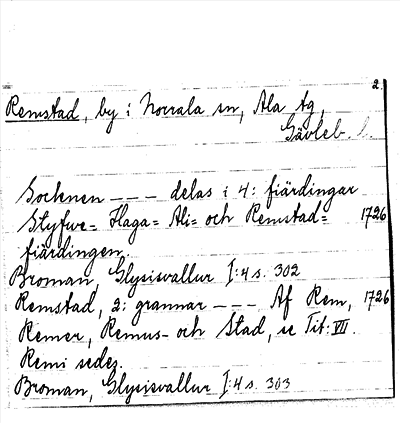 2.
Remstad, by i Norrala sn, Ala tg,
Gävleb. l.
Socknen - - - delas i 4: fiärdingar
Styfwe= Haga= Ali= och Remstad= 1726
fiärdingen.
Broman, Glysisvallur I:4 s. 302
Remstad, 2: grannar - - - Af Rem, 1726
Remer, Remus- och Stad, se Tit: VII.
Remi sedes.
Broman, Glysisvallur I:4 s. 303